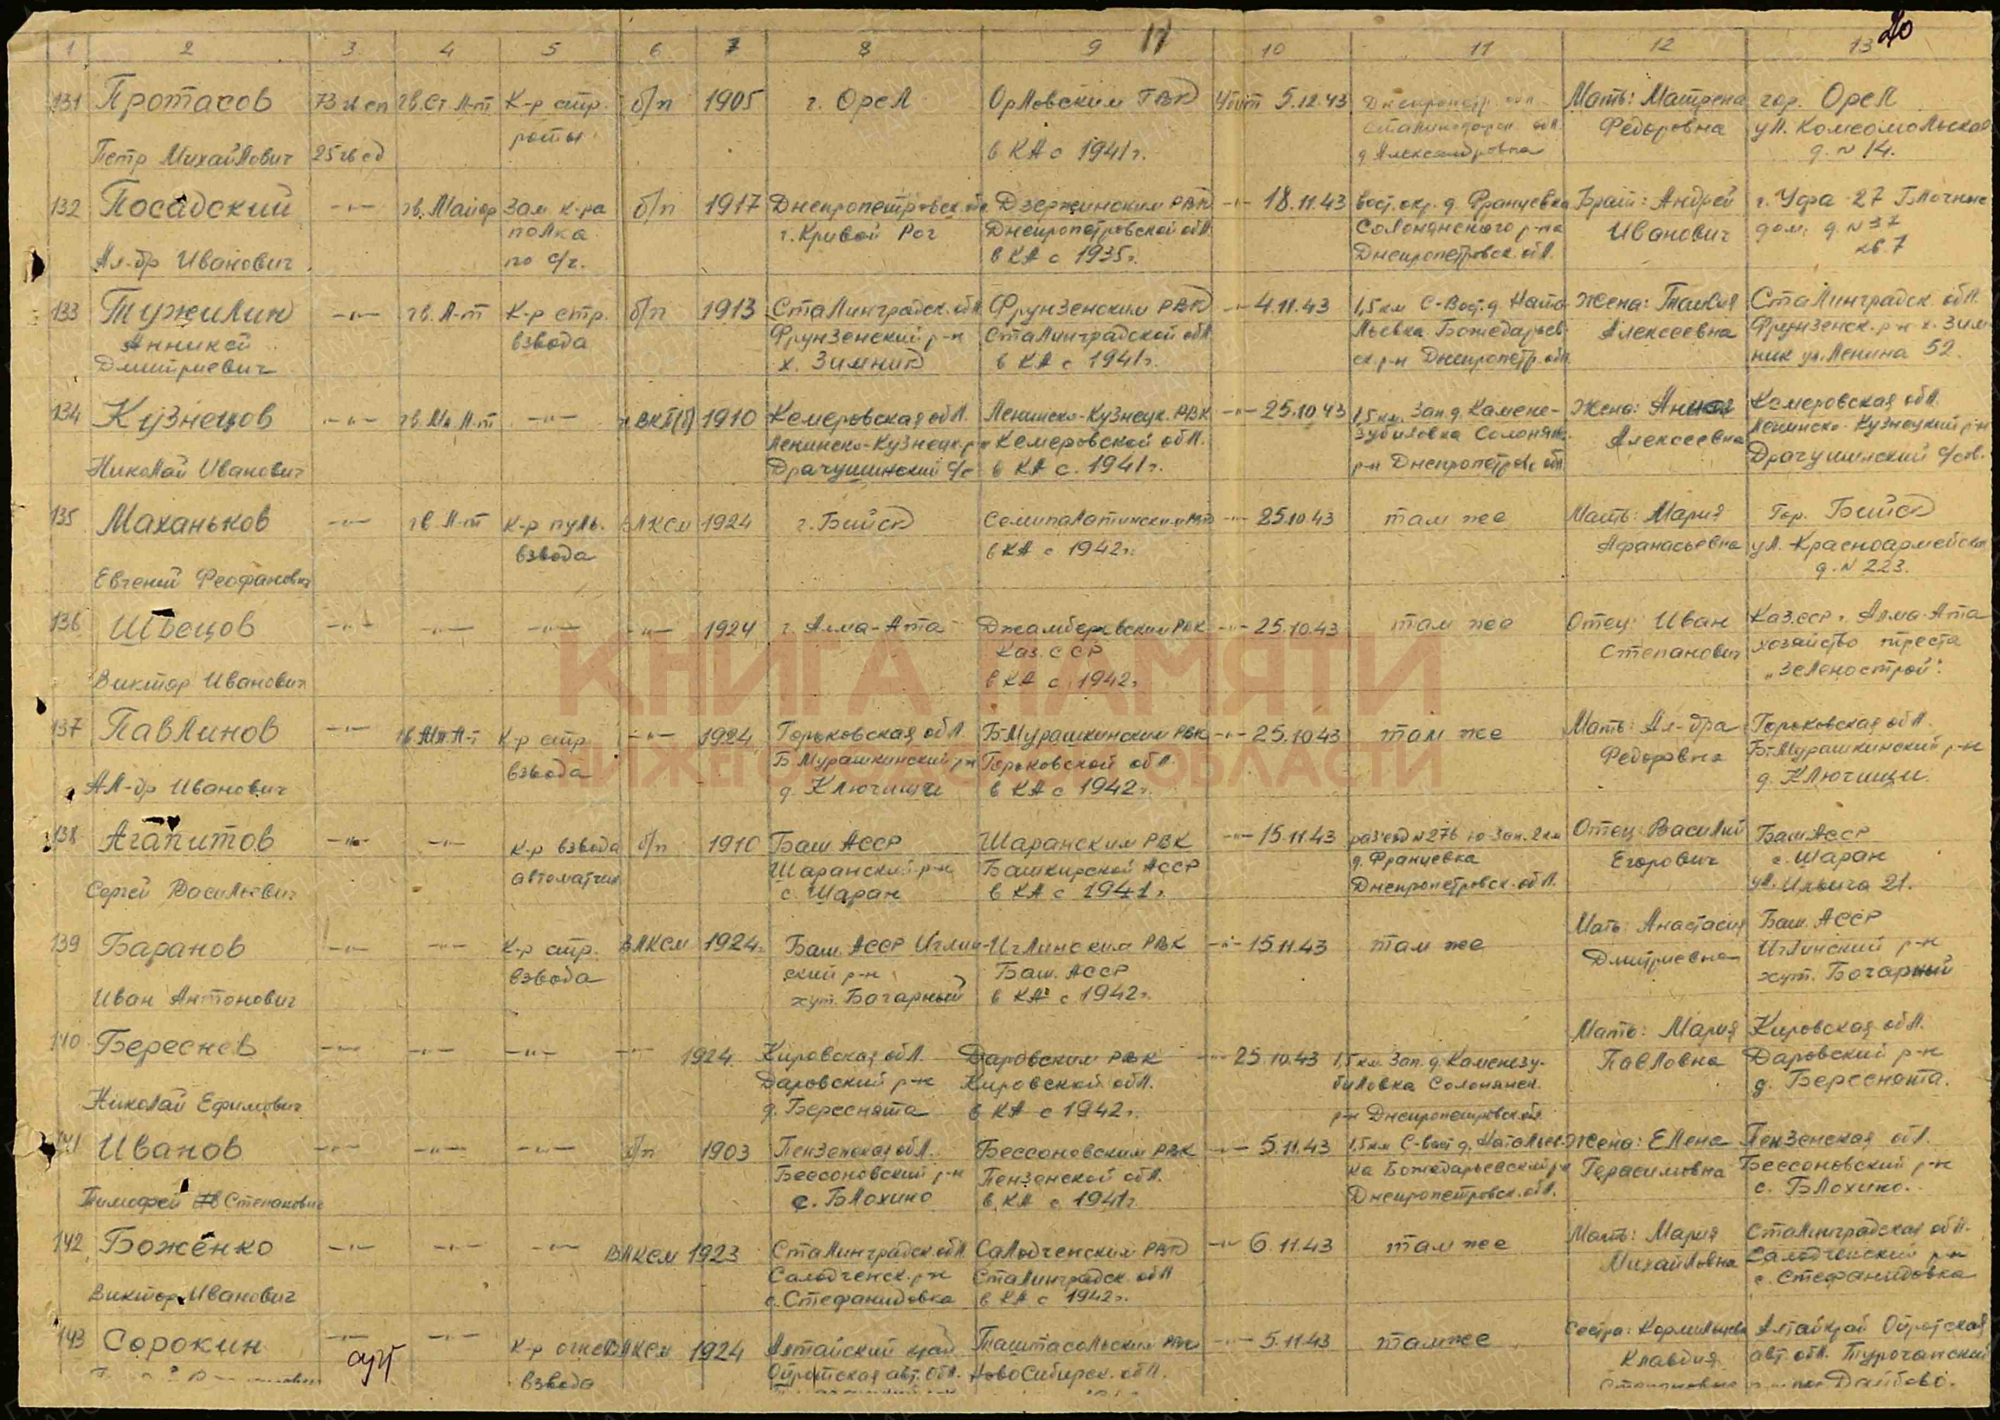 17
20
1 2 3 4 5 6 7 8 9 10 11 12 13
131 Протасов 73 гв сп гв. Ст. Л-т К-р стр. б/п 1905 г. Орел Орловским ГВК Убит 5.12.43 Мать: Матрена гор. Орел
роты Федоровна ул. Комсомольская
Петр Михайлович 25 гв сд в КА с 1941 г. д. Александровка д. № 14.
132 Посадский -"- гв. Майор Зам к-ра б/п 1917 Днепропетровск. обл. Дзержинским РВК -"- 18.11.43 вост. окр. д. Францевка Брат: Андрей г. Уфа 27 Блочные
полка г. Кривой Рог Днепропетровской обл. Солонянского р-на Иванович дом. д. № 37
Ал-др Иванович по с/ч. в КА с 1935 г. Днепропетровск. обл. кв. 7
133 Тужилин -"- гв. Л-т К-р стр. б/п 1913 Сталинградск. обл. Фрунзенским РВК -"- 4.11.43 1,5 км С-Вост. д. Ната- Жена: Таисия Сталинградск. обл.
Анникей взвода Фрунзенский р-н Сталинградской обл. льевка Божедарьев- Алексеевна Фрунзенск. р-н х. Зим
Дмитриевич х. Зимний в КА с 1941 г. ск. р-н Днепропетр. обл. ник ул. Ленина 52.
134 Кузнецов -"- гв. Мл Л-т -"- ВКП(б) 1910 Кемеровская обл. Ленинско-Кузнецк. РВК -"- 25.10.43 1,5 км. Зап. д. Камене- Жена: Анна Кемеровская обл.
Ленинско-Кузнецк. р-н Кемеровской обл. зубиловка Солонян. Алексеевна Ленинско-Кузнецкий р-н
Николай Иванович Драчушинский с/с в КА с. 1941 г. р-н Днепропетровс. обл. Драчушинский с/сов.
135 Маханьков -"- гв. Л-т К-р пуль. ВЛКСМ 1924 г. Бийск Семипалатинским РВК -"- 25.10.43 там же Мать: Мария Гор. Бийск
взвода в КА с 1942 г. Афанасьевна ул. Красноармейская
Евгений Феофанович д. № 223.
136 Швецов -"- -"- -"- -"- 1924 г. Алма-Ата РВК -"- 25.10.43 там же Отец: Иван Каз.сср г. Алма-Ата
Каз. ССР Степанович хозяйство треста
Виктор Иванович в КА с. 1942 г. „Зеленострой".
137 Павлинов -"- гв. Мл Л-т К-р стр -"- 1924 Горьковская обл. Б-Мурашкинским РВК -"- 25.10.43 там же Мать: Ал-дра Горьковская обл.
взвода Б Мурашкинский р-н Горьковской обл. Федоровна Б-Мурашкинский р-н
Ал-др Иванович д. Ключищи в КА с 1942 г. д. Ключищи.
138 Агапитов -"- -"- К-р взвода б/п 1910 Баш АССР Шаранским РВК -"- 15.11.43 раз'езд № 276 ю-Зап. 2 км Отец: Василий Баш АССР
автоматчик Шаранский р-н Башкирской АССР д. Францевка Егорович с. Шаран
Сергей Васильевич с. Шаран в КА с 1941 г. Днепропетровск. обл. ул. Ильича 21.
139 Баранов -"- -"- К-р стр. ВЛКСМ 1924 г. Баш. АССР Иглин- Иглинским РВК -"- 15.11.43 там же Мать: Анастасия Баш. АССР
взвода ский р-н Баш. АССР Дмитриевна Иглинский р-н
Иван Антонович хут. Бочарный в КА с 1942 г. хут. Бочарный
140 Береснев -"- -"- -"- -"- 1924. Кировская обл. Даровским РВК -"- 25.10.43 1,5 км. Зап. д. Каменезу- Мать: Мария Кировская обл.
Даровский р-н Кировской обл. биловка Солонянск. Павловна Даровский р-н
Николай Ефимович д. Береснята в КА с 1942 г. р-н Днепропетровской д. Береснята.
141 Иванов -"- -"- -"- б/п 1903 Пензенская обл. Бессоновским РВК -"- 5.11.43 1,5 км С-вост д. Натальев- Жена: Елена Пензенская обл.
Бессоновский р-н Пензенской обл. ка Божедарьевский р-н Герасимовна Бессоновский р-н
Тимофей Степанович с. Блохино в КА с 1941 г. Днепропетровск. обл. с. Блохино.
142 Боженко -"- -"- -"- ВЛКСМ 1923 Сталинградск обл Салодченским РВК -"- 6.11.43 там же Мать: Мария Сталинградская обл.
Салодченск. р-н Сталинградск. обл Михайловна Салодченский р-н
Виктор Иванович с. Стефанидовка в КА с 1942 г. с. Стефанидовка
143 Сорокин -"- -"- К-р огнев ВЛКСМ 1924 Алтайский край Таштагольским РВК -"- 5.11.43 там же Сестра: Кормильцева Алтай край Ойротская
взвода Ойротская авт. обл. Новосибирск. обл. Клавдия авт. обл. Турочакский
Дайбово.
КНИГА ПАМЯТИ
НИЖЕГОРОДСКОЙ ОБЛАСТИ